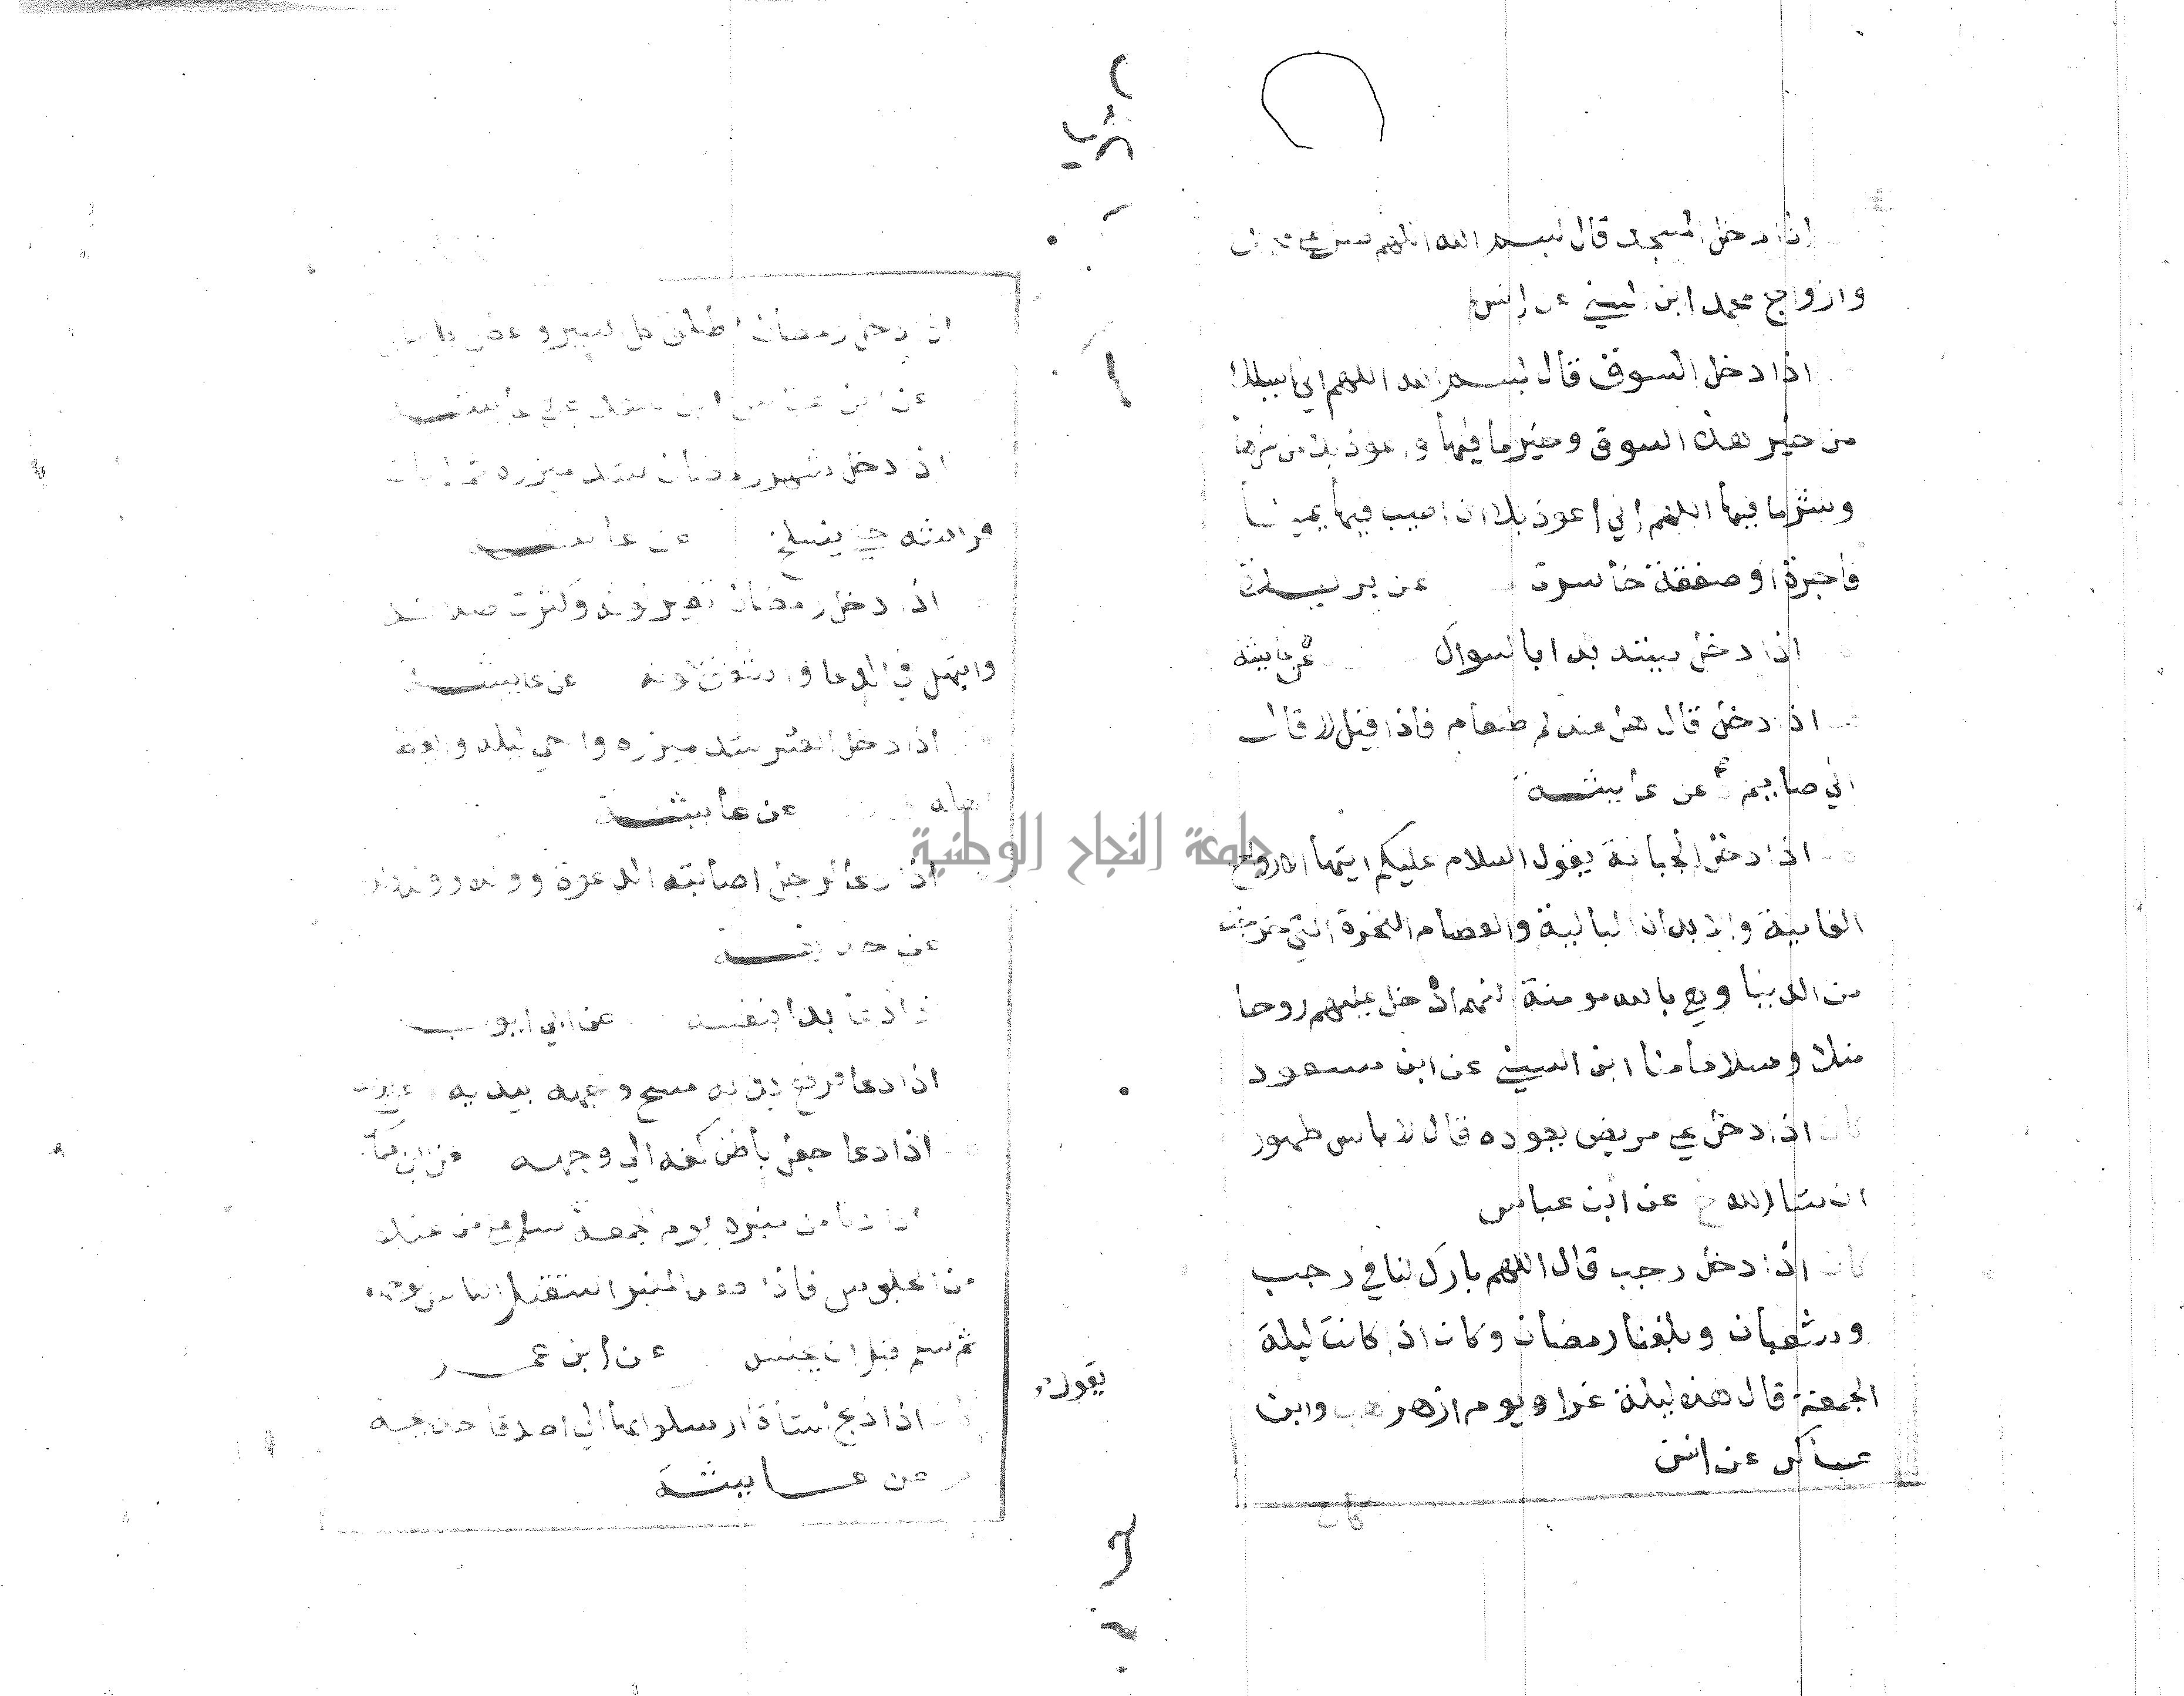 اذا دخل المسجد قال بسم الله اللهم صل على محمد
وازواج محمد ابن السني عن انس
اذا دخل السوق قال بسم الله اللهم اني اسالك
من خير هذه السوق وخير ما فيها واعوذ بك من شرها
وشر ما فيها اللهم اني اعوذ بك ان اصيب فيها يمينا
فاجرة او صفقة خاسرة عن بريدة
اذا دخل بيته بدا بالسواك عن عايشة
اذا دخل قال هل عندكم طعام فاذا قيل لا قال
اني صايم عن عايشة
اذا دخل الجبانة يقول السلام عليكم ايتها الارواح
الفانية والابدان البالية والعضام النخرة التي خرجت
من الدنيا وهي بالله مومنة اللهم ادخل عليهم روحا
منك وسلاما منا ابن السني عن ابن مسعود
كان اذا دخل على مريض يعوده قال لا باس طهور
ان شا الله خ عن ابن عباس
كان اذا دخل رجب قال اللهم بارك لنا في رجب
وشعبان وبلغنا رمضان وكان اذا كانت ليلة
الجمعة قال هذه ليلة غرا ويوم ازهر هب وابن
عساكر عن انس
كان
اذا دخل رمضان اطلق كل اسير و
عن ابن عباس ابن سعد عن عايشة
اذا دخل شهر رمضان شد ميزره ثم لم يات
فراشه حتى ينسلخ عن عايشة
اذا دخل رمضان تغير لونه وكثرت صلاته
وابتهل في الدعا واشفق لونه عن عايشة
اذا دخل العشر شد ميزره واحي ليله وايقظ
اهله عن عايشة
اذا دعا لرجل اصابته الدعوة وولده وولد
عن حذيفة
اذا دعا بدا بنفسه عن ابي ايوب
اذا دعا فرفع يديه مسح وجهه بيديه
اذا دعا جعل باطن كفه الى وجهه عن ابن عباس
اذا دنا من منبره يوم الجمعة سلم على من عنده
من الجلوس فاذا صعد المنبر استقبل الناس بوجهه
ثم سلم قبل ان يجلس عن ابن عمر
كان اذا ذبح الشاة ارسلوا بها الى اصدقا خديجة
م عن عايشة
يقول
جامعة النجاح الوطنية